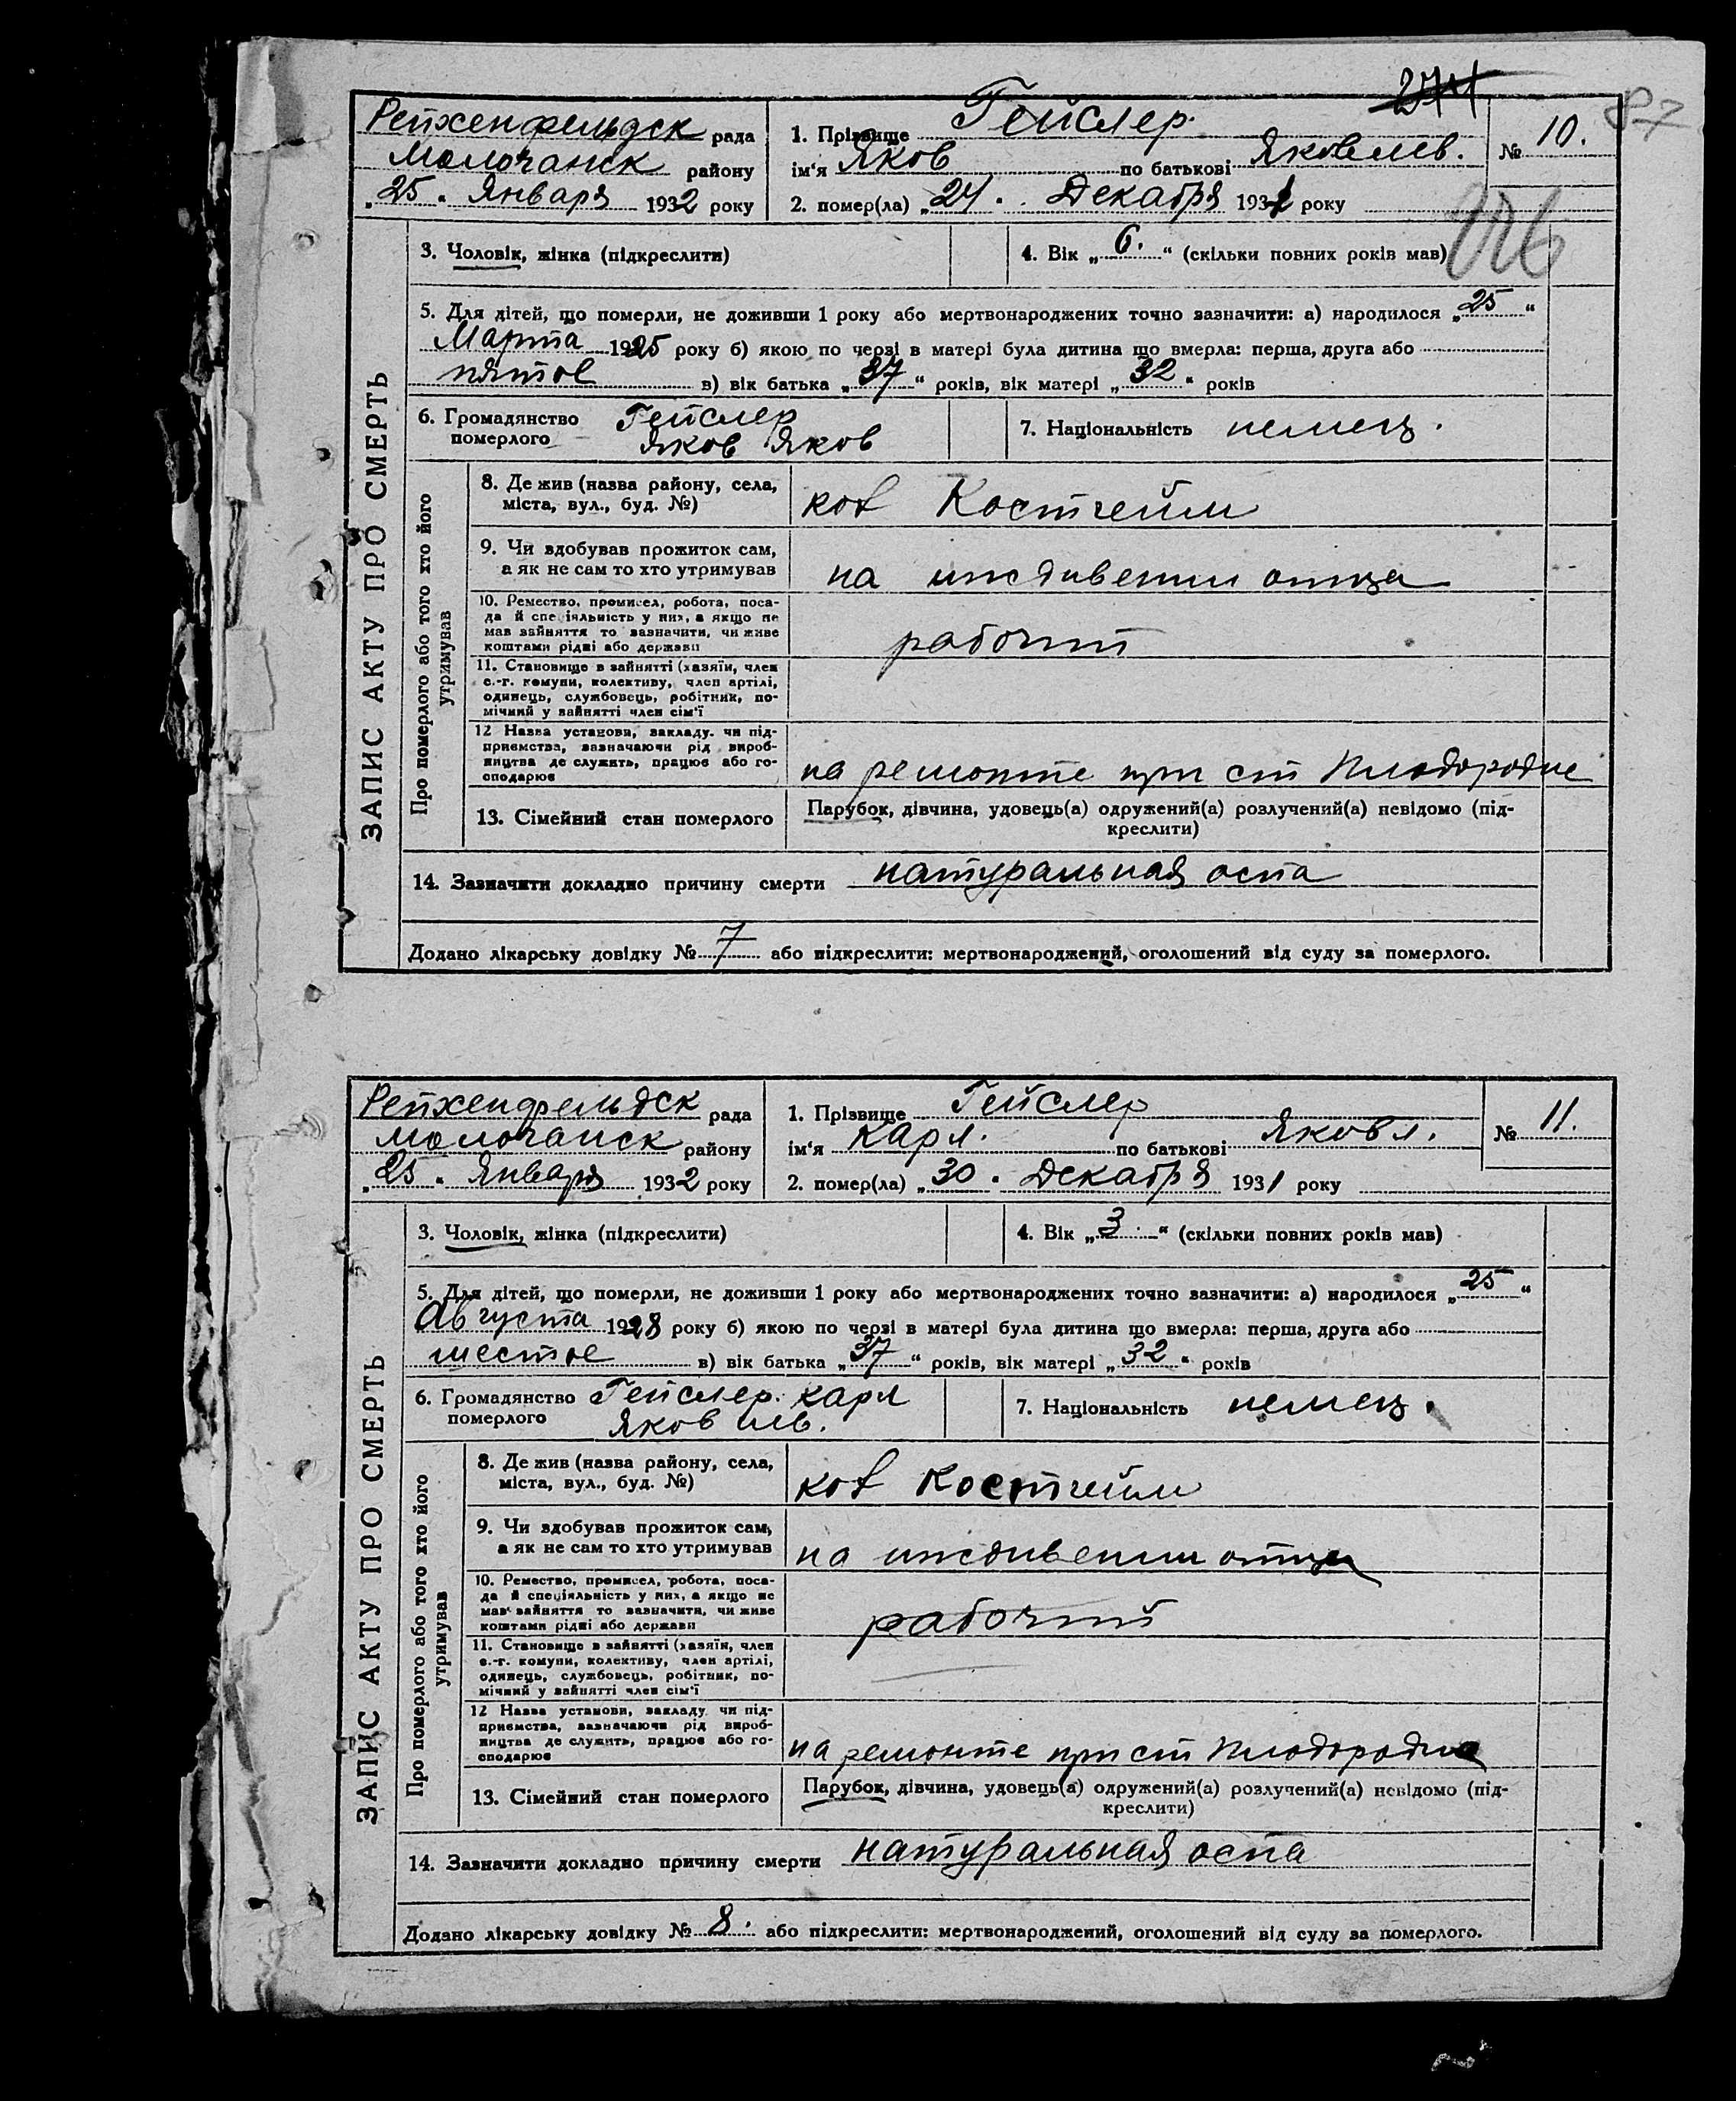 274
87
Рейхенфельдск рада
Молочанск району
„25“ Января 1932 року
1. Прізвище Гейслер
ім'я Яков по батькові Яковлев.
2. помер(ла) „24. Декабря 1931 року
№ 10.
ЗАПИС АКТУ ПРО СМЕРТЬ
3. Чоловік, жінка (підкреслити)
4. Вік „6.“ (скільки повних років мав)
5. Для дітей, що померли, не доживши 1 року або мертвонароджених точно зазначити: а) народилося „25“
Марта 1925 року б) якою по черзі в матері була дитина що вмерла: перша, друга або
пятое в) вік батька „37“ років, вік матері „32“ років
6. Громадянство Гейслер
померлого Яков Яков
7. Національність немец.
Про померлого або того хто його
утримував
8. Де жив (назва району, села,
міста, вул., буд. №)
Костгейм
9. Чи здобував прожиток сам,
а як не сам то хто утримував
на иждивении отца
10. Ремество, промисел, робота, поса-
да й спеціяльність у них, а якщо не
мав зайняття то зазначити, чи живе
коштами рідні або держави
рабочий
11. Становище в зайнятті (хазяїн, член
с.-г. комуни, колективу, член артілі,
одинець, службовець, робітник, по-
мічний у зайнятті член сім'ї
12 Назва установи, закладу. чи під-
приємства, зазначаючи рід вироб-
ництва де служить, працює або го-
сподарює
на ремонте при ст Плодородие
13. Сімейний стан померлого
Парубок, дівчина, удовець(а) одружений(а) розлучений(а) невідомо (під-
креслити)
14. Зазначити докладно причину смерти натуральная оспа
Додано лікарську довідку № 7 або підкреслити: мертвонароджений, оголошений від суду за померлого.
Рейхенфельдск рада
Молочанск району
„25“ Января 1932 року
1. Прізвище Гейслер
ім'я Карл. по батькові Яковл.
2. помер(ла) „30. Декабря 1931 року
№ 11.
ЗАПИС АКТУ ПРО СМЕРТЬ
3. Чоловік, жінка (підкреслити)
4. Вік „3.“ (скільки повних років мав)
5. Для дітей, що померли, не доживши 1 року або мертвонароджених точно зазначити: а) народилося „25“
Августа 1928 року б) якою по черзі в матері була дитина що вмерла: перша, друга або
шестое в) вік батька „37“ років, вік матері „32“ років
6. Громадянство Гейслер. Карл
померлого Яковлев.
7. Національність немец.
Про померлого або того хто його
утримував
8. Де жив (назва району, села,
міста, вул., буд. №)
Костгейм
9. Чи здобував прожиток сам,
а як не сам то хто утримував
на иждивении отца
10. Ремество, промисел, робота, поса-
да й спеціяльність у них, а якщо не
мав зайняття то зазначити, чи живе
коштами рідні або держави
рабочий
11. Становище в зайнятті (хазяїн, член
с.-г. комуни, колективу, член артілі,
одинець, службовець, робітник, по-
мічний у зайнятті член сім'ї
12 Назва установи, закладу. чи під-
приємства, зазначаючи рід вироб-
ництва де служить, працює або го-
сподарює
на ремонте при ст Плодородие
13. Сімейний стан померлого
Парубок, дівчина, удовець(а) одружений(а) розлучений(а) невідомо (під-
креслити)
14. Зазначити докладно причину смерти натуральная оспа
Додано лікарську довідку № 8. або підкреслити: мертвонароджений, оголошений від суду за померлого.